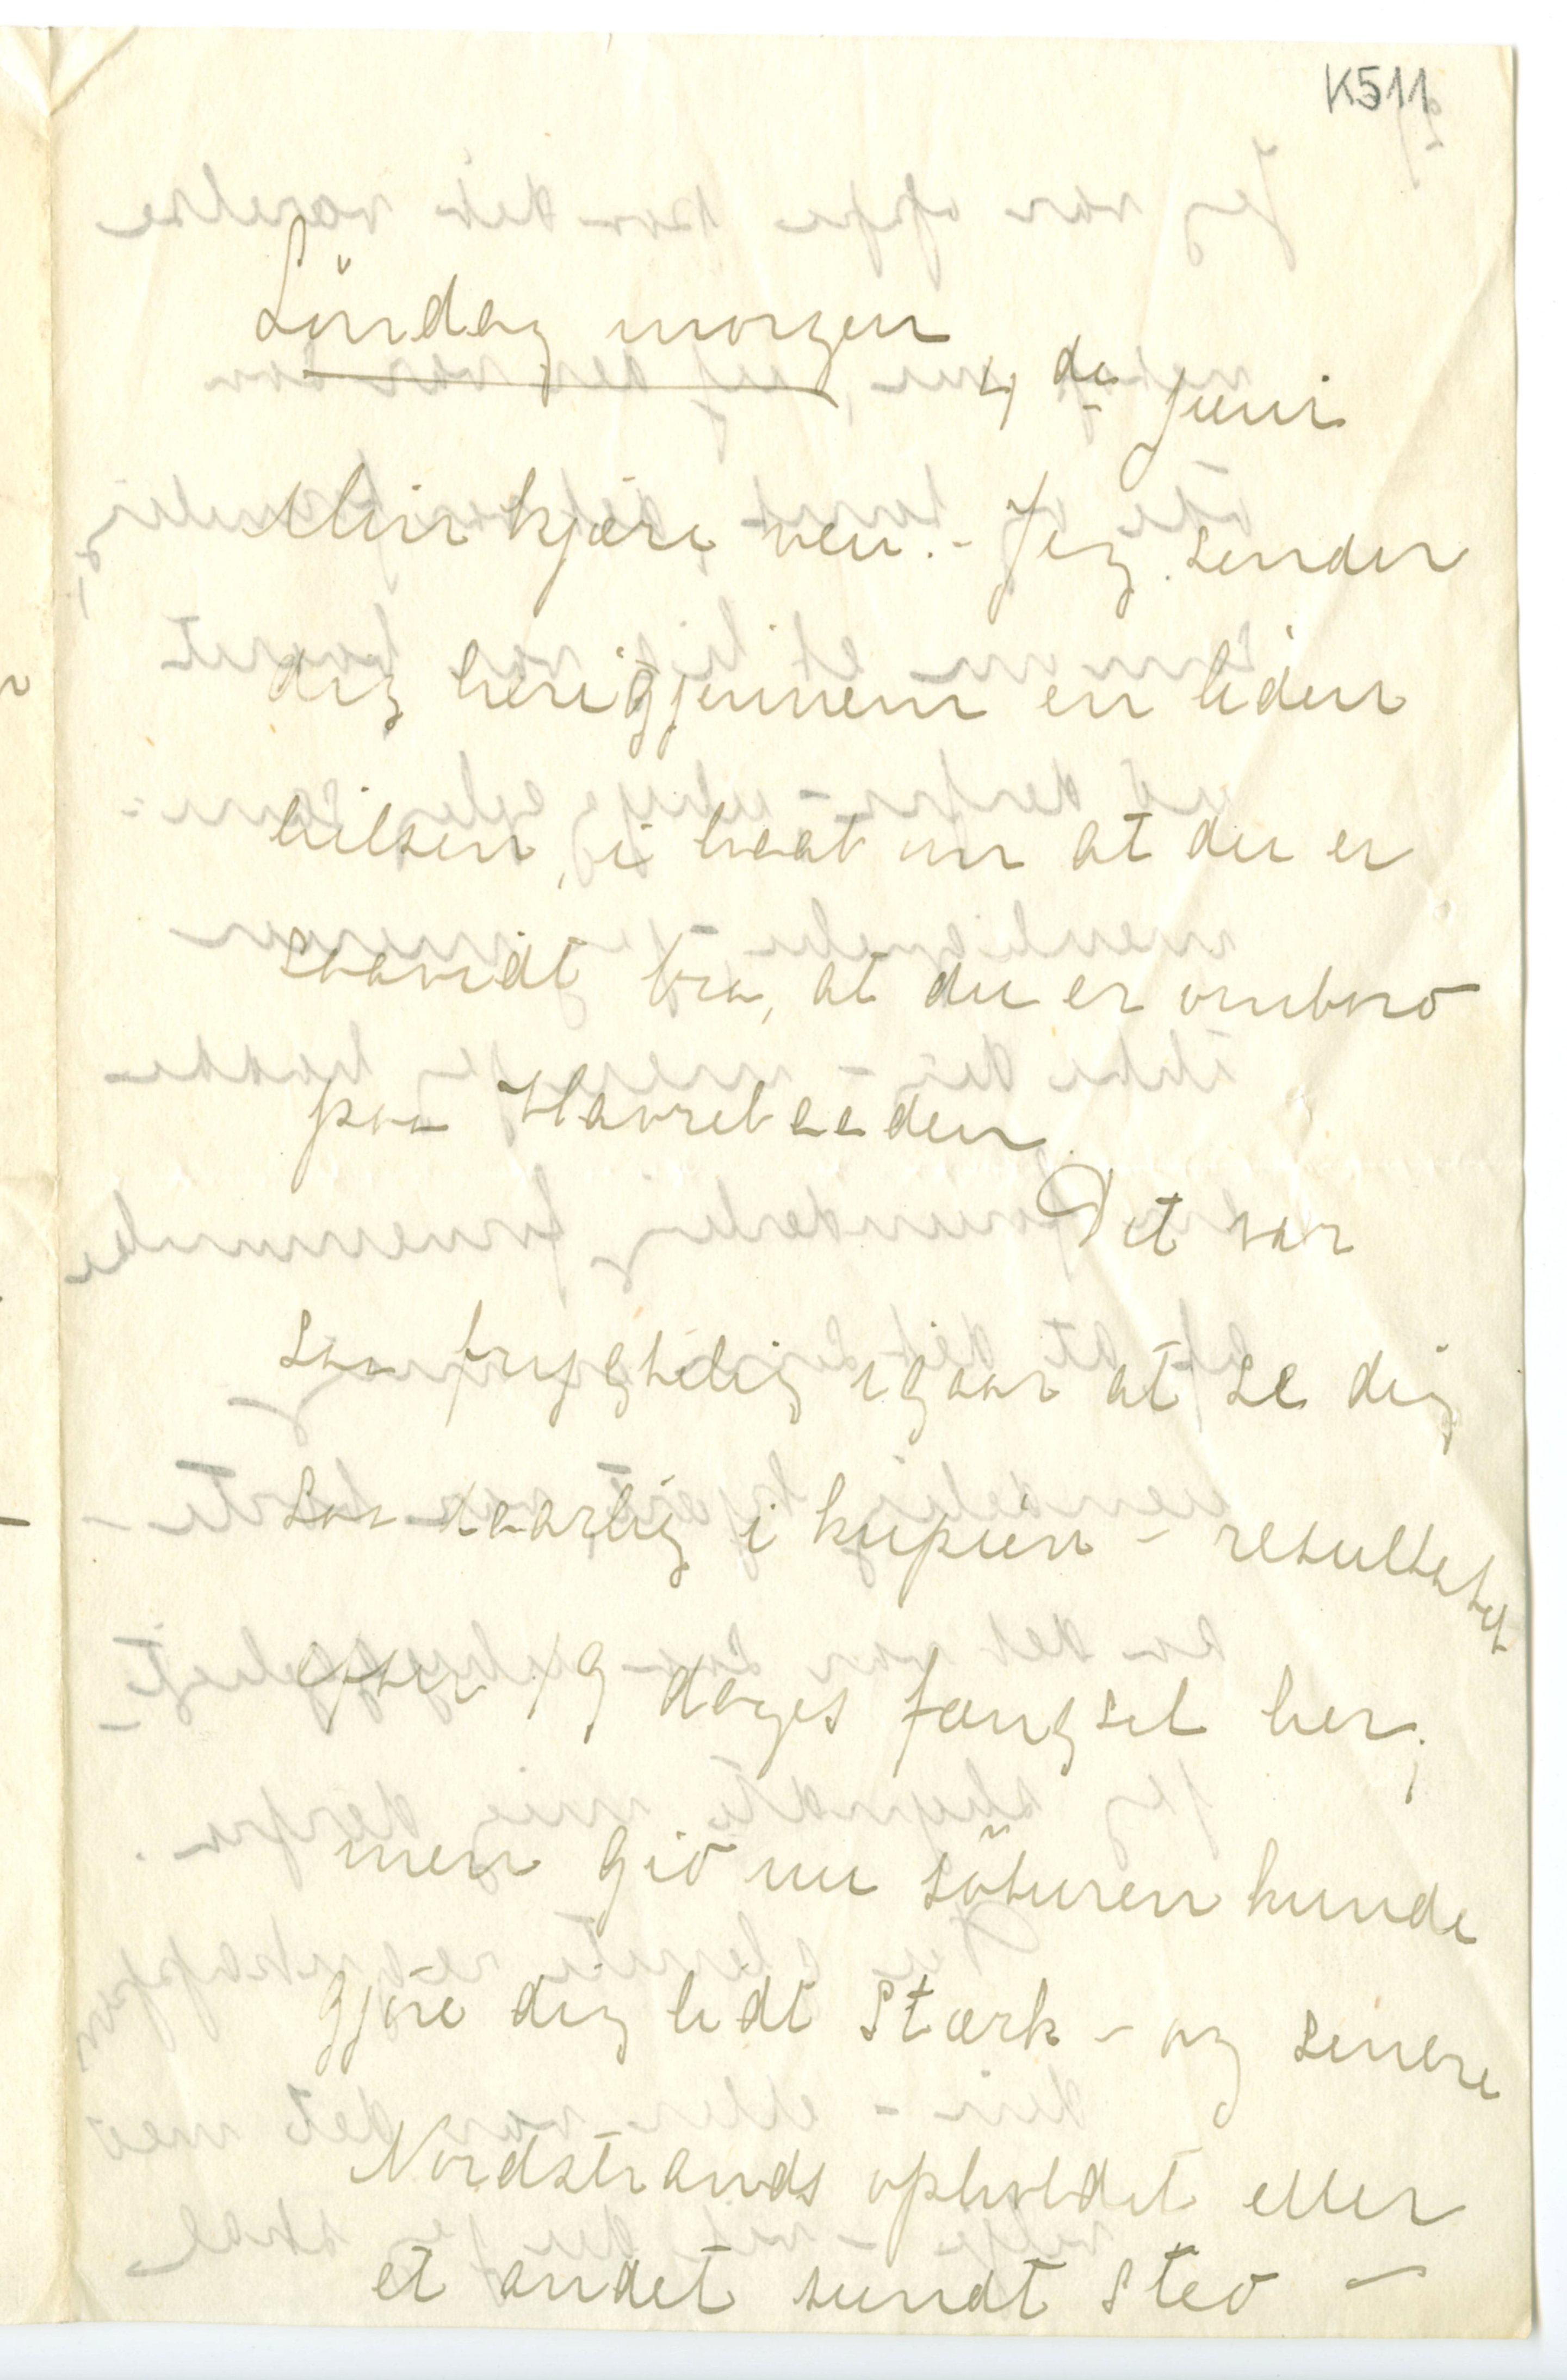 K511
Söndag morgen
4 de Juni
Min kjære ven. - Jeg sender
dig herigjennem en liden
hilsen, i haab om at du er
saavidt bra, at du er ombord
paa Havrebaaden.
Det var
saa frygtelig igaar at se dig
saa daarlig i kupeen - resultatet
efter 19 dages fængsel her;
men gid nu söturen kunde
gjöre dig lidt stærk - og senere
Nordstrands opholdet eller
et andet sundt sted -